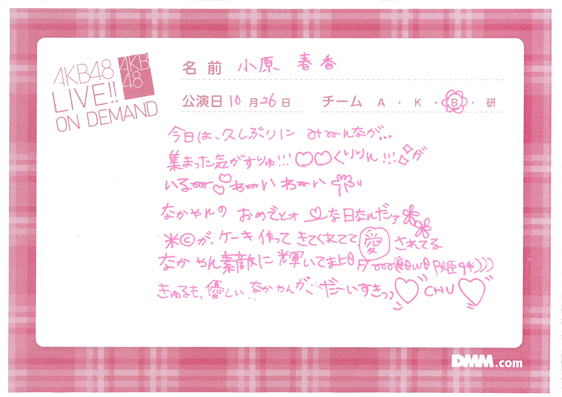 AKB48
LIVE!!
ON DEMAND
AKB
48
名前 小原 春香
公演日 10月26日 チーム A・K・B・研
今日は、久しぶりに み〜んなが...
集まった気がすりゅ!!!♡♡くりりん!!!が
いる〜♡わ〜いわ〜い
なかやんの おめでとォ な日なんだァ
米©が、ケーキ作ってきてくれてて 愛 されてる
なかやん素敵に輝いてまし
きゅるも、優しい なかやんが、だーいすきっ♡ CHU ♡
DMM.com